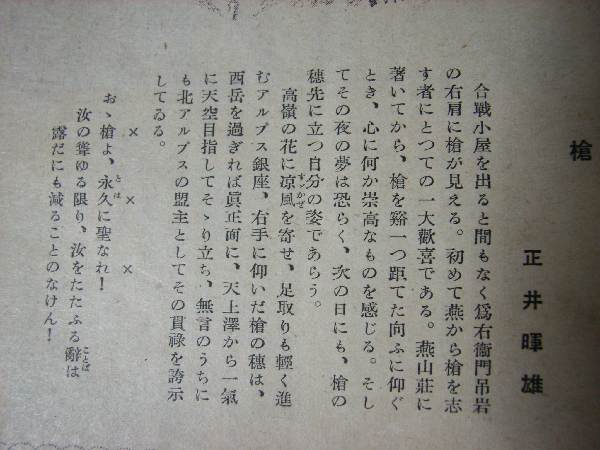 槍
正井暉雄
合戰小屋を出ると間もなく爲右衞門吊岩
の右肩に槍が見える。初めて燕から槍を志
す者にとつての一大歡喜である。燕山莊に
著いてから、槍を谿一つ距てた向ふに仰ぐ
とき、心に何か崇高なものを感じる。そし
てその夜の夢は恐らく、次の日にも、槍の
穗先に立つ自分の姿であらう。
高嶺の花に涼風を寄せ、足取りも輕く進
むアルプス銀座、右手に仰いだ槍の穗は、
西岳を過ぎれば眞正面に、天上澤から一氣
に天空目指してそゝり立ち、無言のうちに
も北アルプスの盟主としてその貫祿を誇示
してゐる。
× × ×
おゝ槍よ、永久に聖なれ！
汝の聳ゆる限り、汝をたたふる辭は
露だにも減ることのなけん！